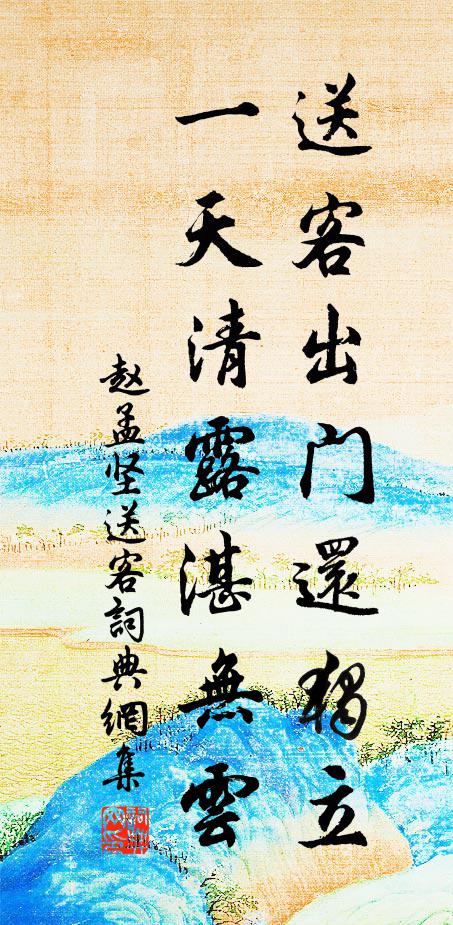 送客出門還獨立
一天清露湛無雲
赵孟坚送客詞典網集